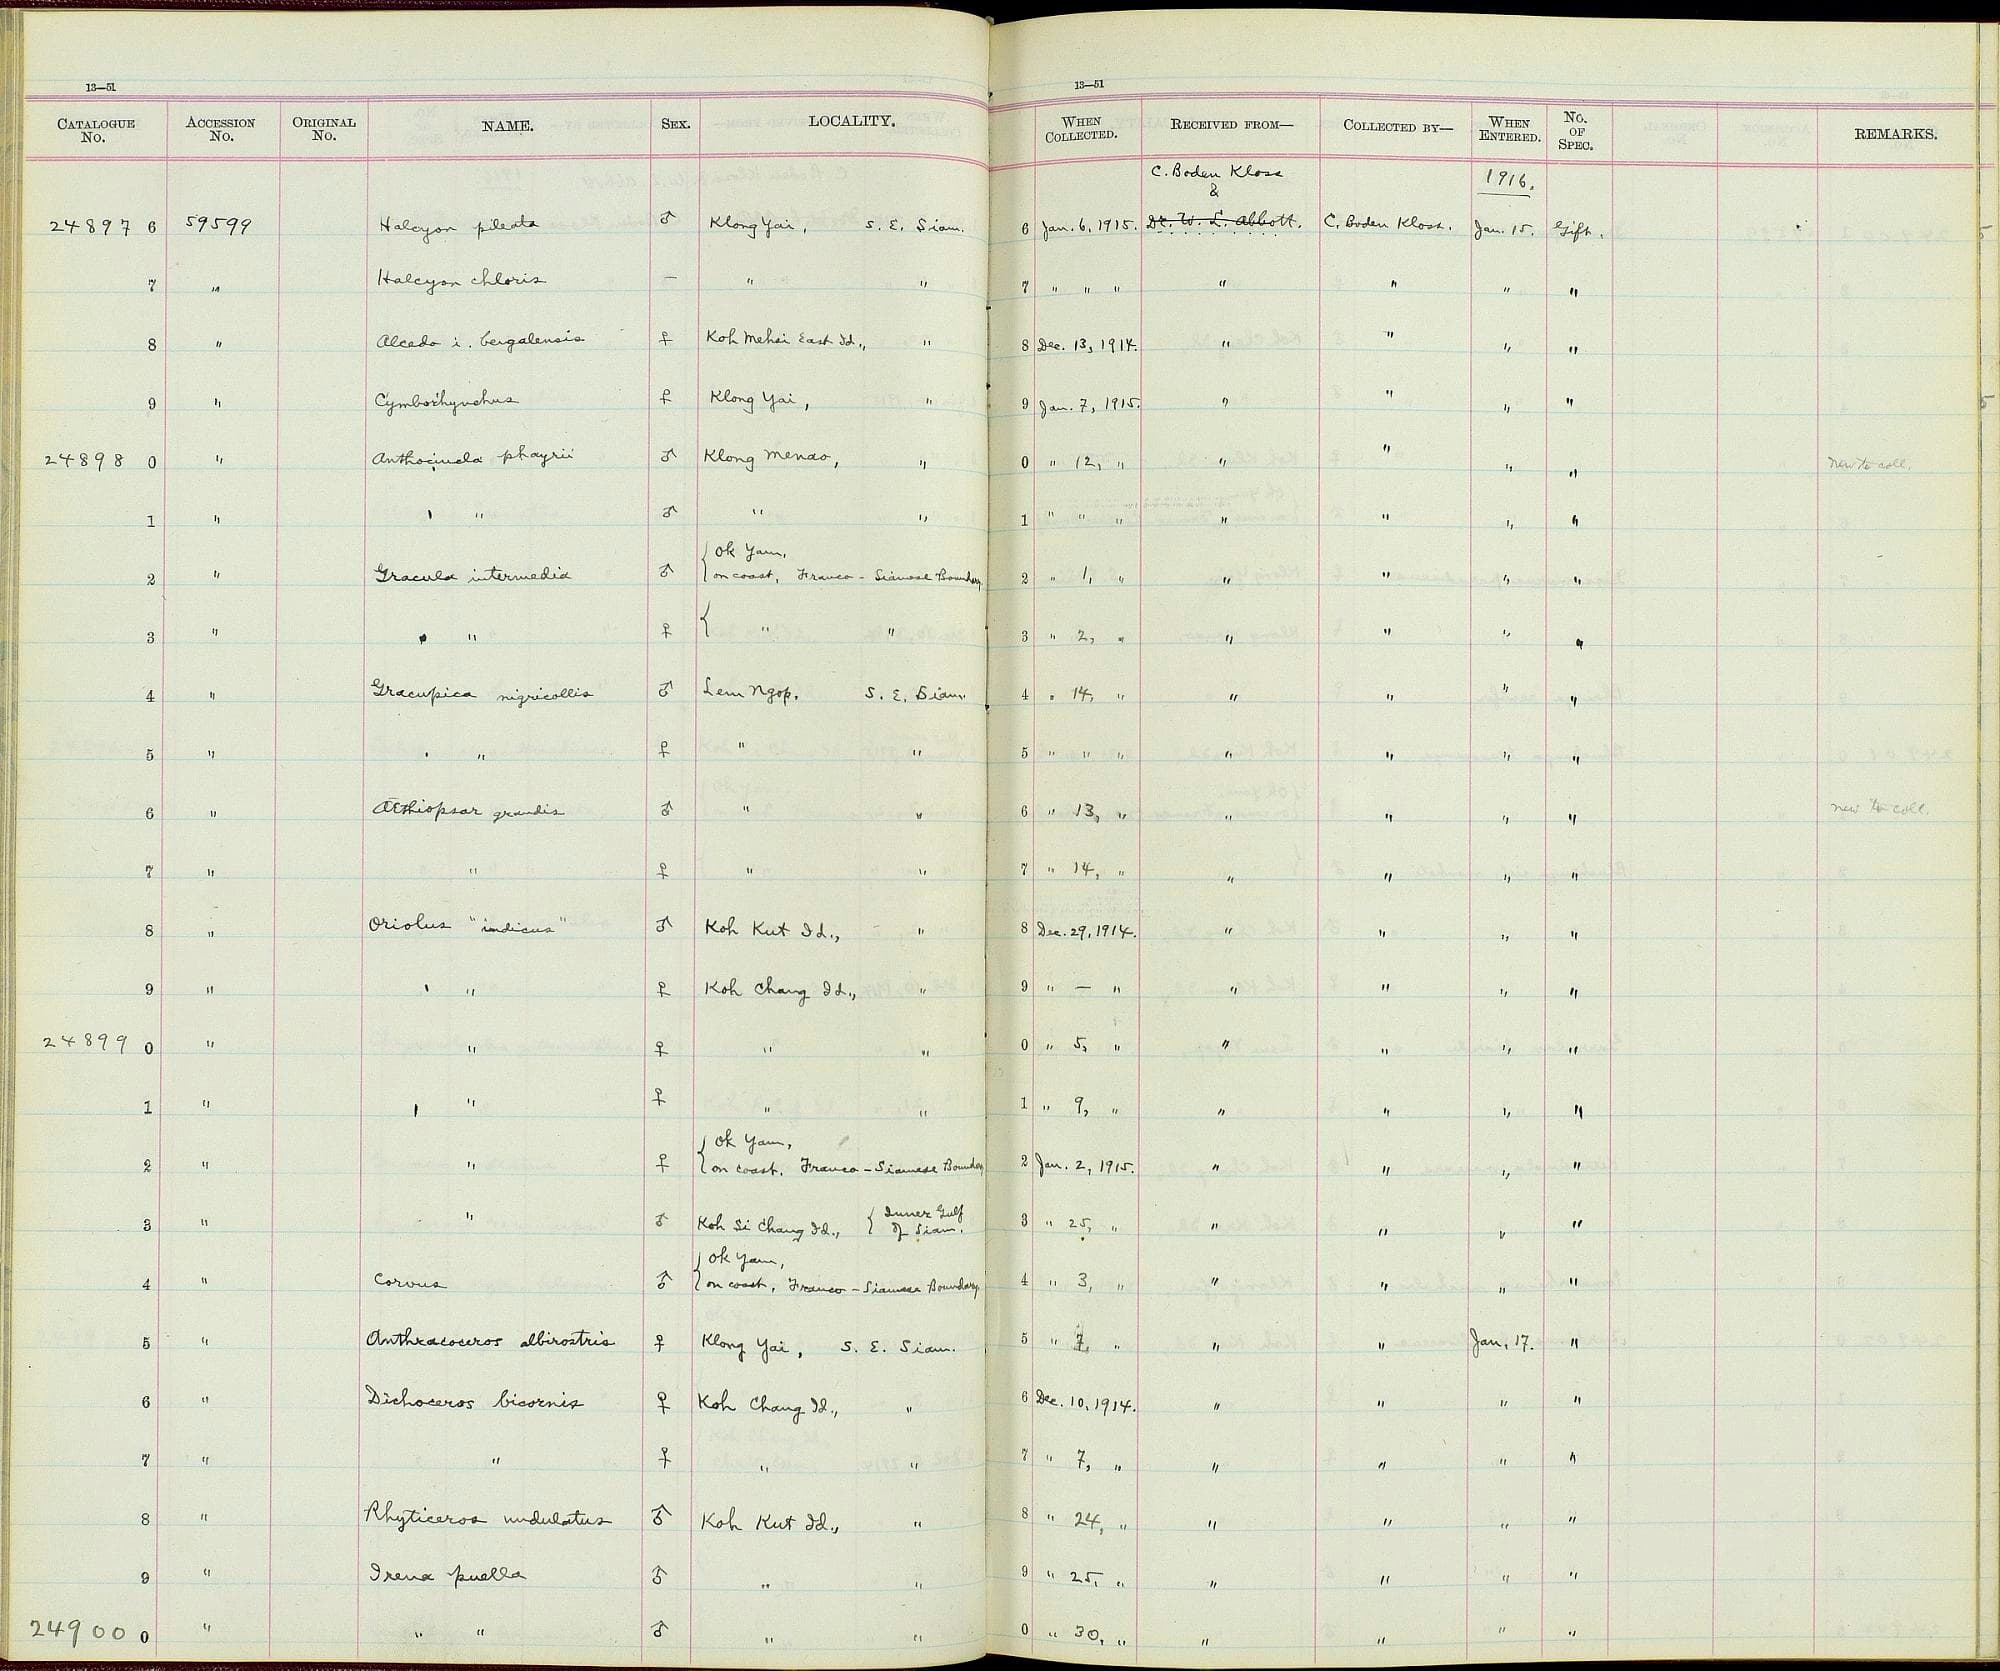 13—51
13—51
CATALOGUE No. ACCESSION No. ORIGINAL No. NAME. SEX. LOCALITY. WHEN COLLECTED. RECEIVED FROM— COLLECTED BY— WHEN ENTERED. No. OF SPEC. REMARKS.
C. Boden Kloss & 1916.
24897 6 59599 Halcyon pileata ♂ Klong Yai, S. E. Siam. 6 Jan. 6, 1915. Dr. W. L. Abbott. C. Boden Kloss. Jan. 15. Gift.
7 " Halcyon chloris — " " 7 " " " " " " "
8 " Alcedo i. bengalensis ♀ Koh Mehsi East Id., " 8 Dec. 13, 1914. " " " "
9 " Cymborhynchus ♀ Klong Yai, " 9 Jan. 7, 1915. " " " "
24898 0 " Anthocincla phayrii ♂ Klong Menao, " 0 " 12, " " " " " new to coll.
1 " " " ♂ " " 1 " " " " " " "
2 " Gracula intermedia ♂ { Ok Yam, on coast, Franco-Siamese Boundary, 2 " 1, " " " " "
3 " " " ♀ { " " 3 " 2, " " " " "
4 " Gracupica nigricollis ♂ Lem Ngop, S. E. Siam. 4 " 14, " " " " "
5 " " " ♀ " " 5 " " " " " " "
6 " Æthiopsar grandis ♂ " " 6 " 13, " " " " " new to coll.
7 " " ♀ " " 7 " 14, " " " " "
8 " Oriolus "indicus" ♂ Koh Kut Id., " 8 Dec. 29, 1914. " " " "
9 " " " ♀ Koh Chang Id., " 9 " — " " " " "
24899 0 " " ♀ " " 0 " 5, " " " " "
1 " " " ♀ " " 1 " 9, " " " " "
2 " " ♀ { Ok Yam, on coast, Franco-Siamese Boundary 2 Jan. 2, 1915. " " " "
3 " " ♂ Koh Si Chang Id., { Inner Gulf of Siam. 3 " 25, " " " " "
4 " Corvus ♂ { Ok Yam, on coast, Franco-Siamese Boundary, 4 " 3, " " " " "
5 " Anthracoceros albirostris ♀ Klong Yai, S. E. Siam. 5 " 7, " " " Jan. 17. "
6 " Dichoceros bicornis ♀ Koh Chang Id., " 6 Dec. 10, 1914. " " " "
7 " " ♀ " " 7 " 7, " " " " "
8 " Rhyticeros undulatus ♂ Koh Kut Id., " 8 " 24, " " " " "
9 " Irena puella ♂ " " 9 " 25, " " " " "
24900 0 " " " ♂ " " 0 " 30, " " " " "